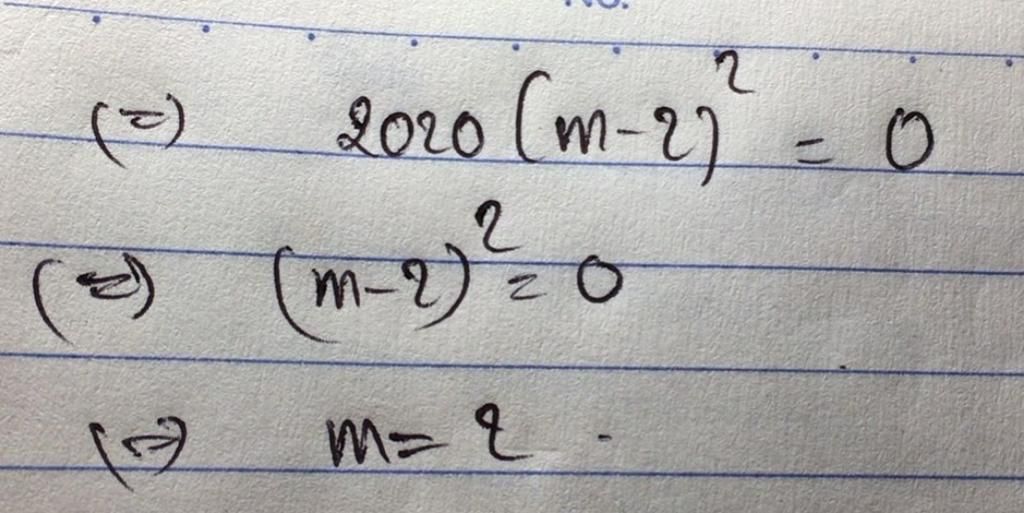 (=) 2020 (m-2)² = 0
(=) (m-2)² = 0
(=) m = 2 .